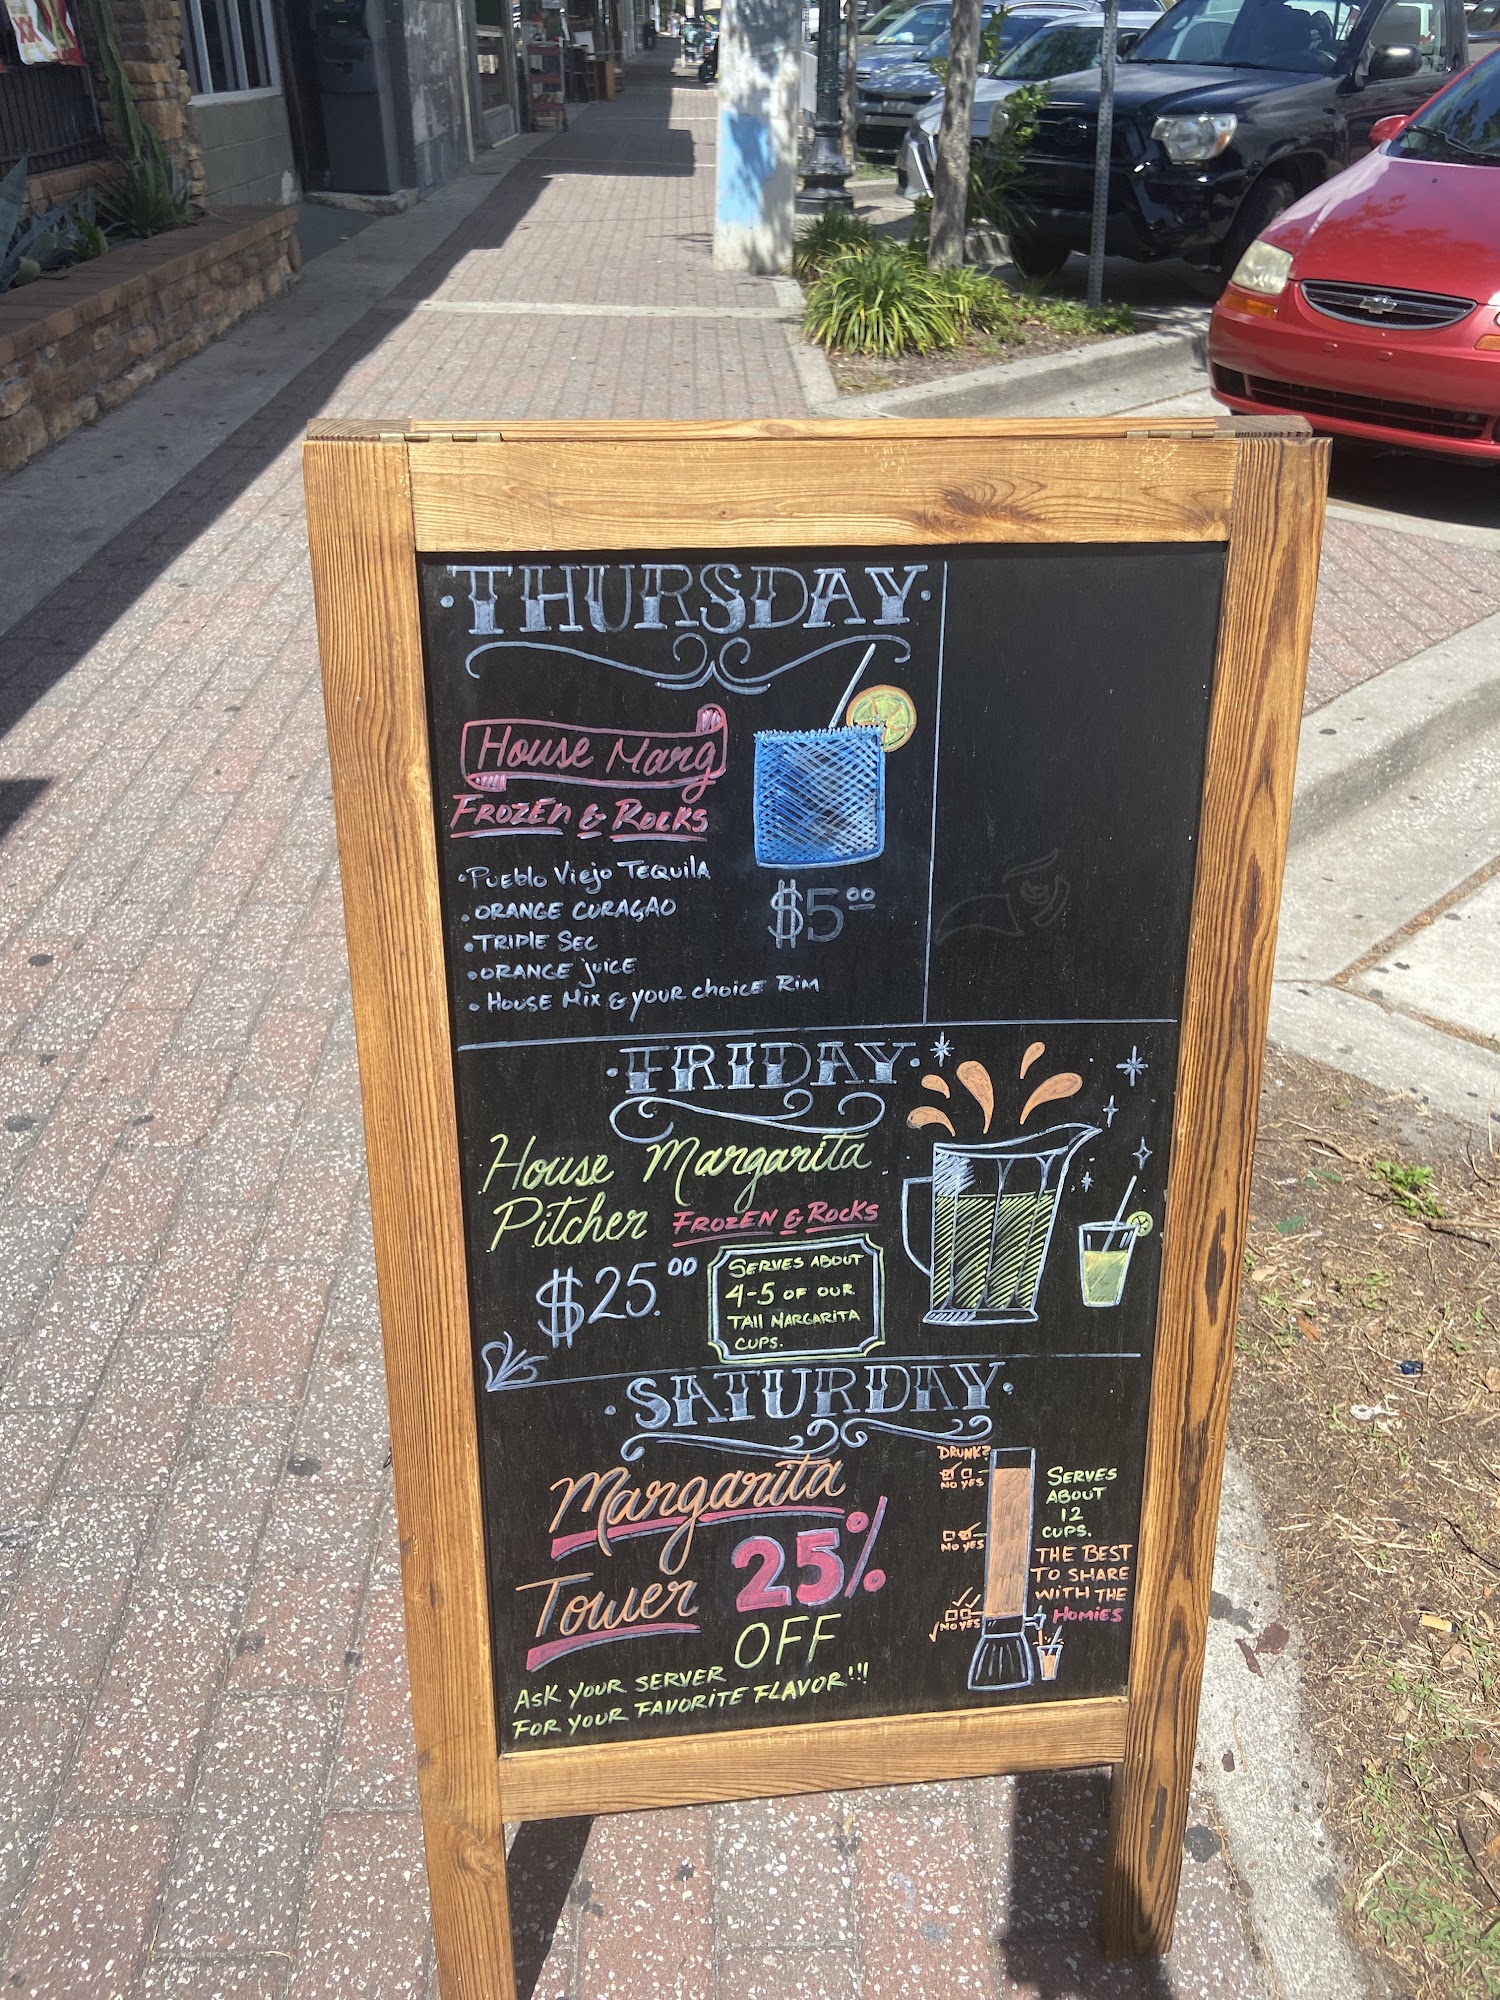 XX
·THURSDAY·
House Marg
FROZEN & ROCKS
•PUEblo ViEjo TEQUilA
•ORANGE CURAÇAO
•TRIPlE SEC
•ORANGE juiCE
•HOUSE Mix & yOUR choiCE Rim
$5.00
·FRIDAY·
House Margarita
Pitcher FROZEN & ROCKS
$25.00
SERVES ABOUT
4-5 OF OUR
TAll MARGARITA
CUPS.
·SATURDAY·
Margarita
Tower
25%
OFF
ASK YOUR SERVER
FOR YOUR FAVORITE FLAVOR!!!
DRUNK?
NO YES
NO YES
NO YES
SERVES
ABOUT
12
CUPS.
THE BEST
TO SHARE
WITH THE
HOMIES